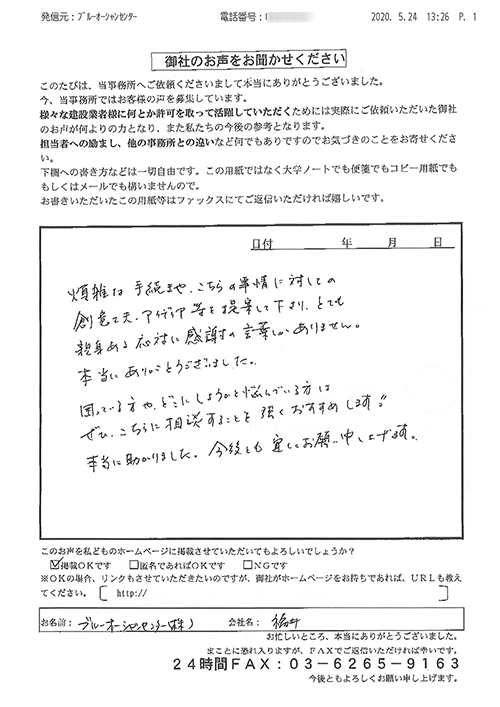 発信元:ブルーオーシャンセンター 電話番号:0 2020. 5.24 13:26 P. 1
御社のお声をお聞かせください
このたびは、当事務所へご依頼くださいまして本当にありがとうございました。
今、当事務所ではお客様の声を募集しています。
様々な建設業者様に何とか許可を取って活躍していただくためには実際にご依頼いただいた御社
のお声が何よりの力となり、また私たちの今後の参考となります。
担当者への励まし、他の事務所との違いなど何でもありですのでお気づきのことをお寄せくださ
い。
下欄への書き方などは一切自由です。この用紙ではなく大学ノートでも便箋でもコピー用紙でも
もしくはメールでも構いませんので。
お書きいただいたこの用紙等はファックスにてご返信いただければ嬉しいです。
日付 年 月 日
煩雑な手続きや、こちらの事情に対しての
創意工夫・アイディア等を提案して下さり、とても
親身ある応対に感謝の言葉しかありません。
本当にありがとうございました。
困っている方や、どこにしようかと悩んでいる方は
ぜひ、こちらに相談することを強くおすすめします!!
本当に助かりました。今後とも宜しくお願い申し上げます。
このお声を私どものホームページに掲載させていただいてもよろしいでしょうか?
☑掲載OKです □匿名であればOKです □NGです
※OKの場合、リンクもさせていただきたいのですが、御社がホームページをお持ちであれば、URLも教え
てください。 [ http:// ]
お名前: ブルーオーシャンセンター(株) 会社名: 福井
お忙しいところ、本当にありがとうございました。
まことに恐れ入りますが、FAXでご返信いただければ幸いです。
24時間FAX:03-6265-9163
今後ともよろしくお願い申し上げます。